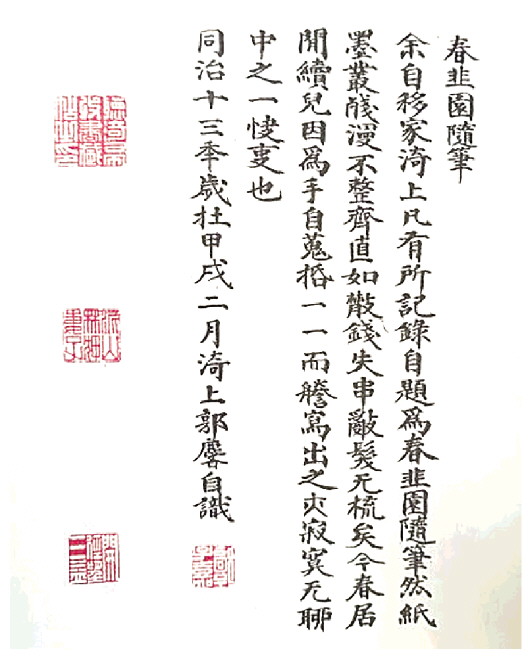 春韭園隨筆
余自移家漪上凡有所記錄自題爲春韭園隨筆然紙
墨叢殘漫不整齊直如散錢失串亂髮无梳矣今春居
閒續兒因爲手自蒐捪一一而謄寫出之亦寂寞无聊
中之一快叓也
同治十三季歲在甲戌二月漪上郭麐自識